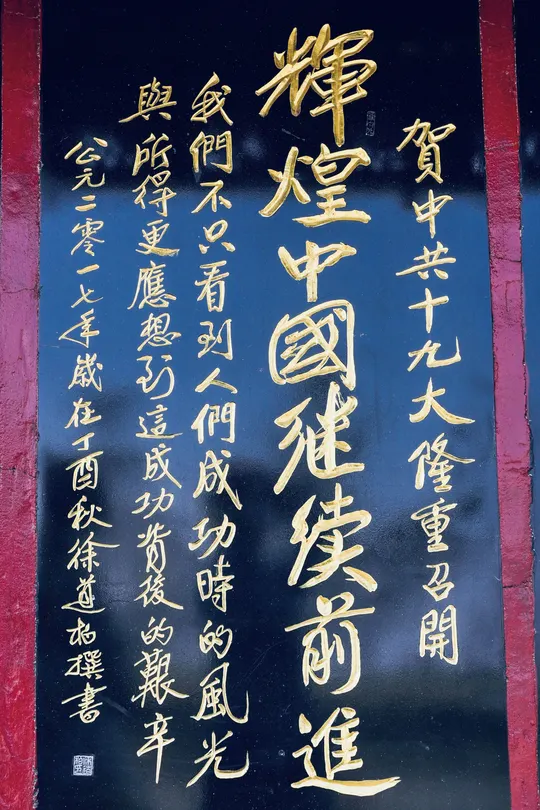 賀中共十九大隆重召開
輝煌中國继续前進
我們不只看到人們成功時的風光
與所得更應想到這成功背後的艱辛
公元二零一七年歲在丁酉秋徐道 撰書